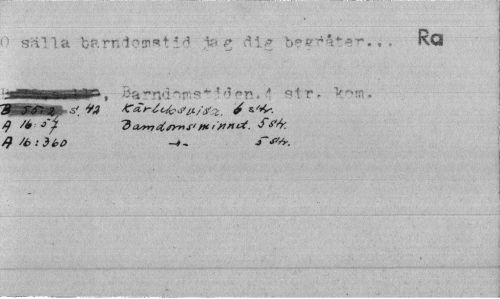 O sälla barndomstid jag dig begråter... Ra
, Barndomstiden.4 str. kom.
B 55:2 s. 42 Kärleksvisa. 6 str.
A 16:57 Barndomsminnet. 5 str.
A 16:360 -"- 5 str.